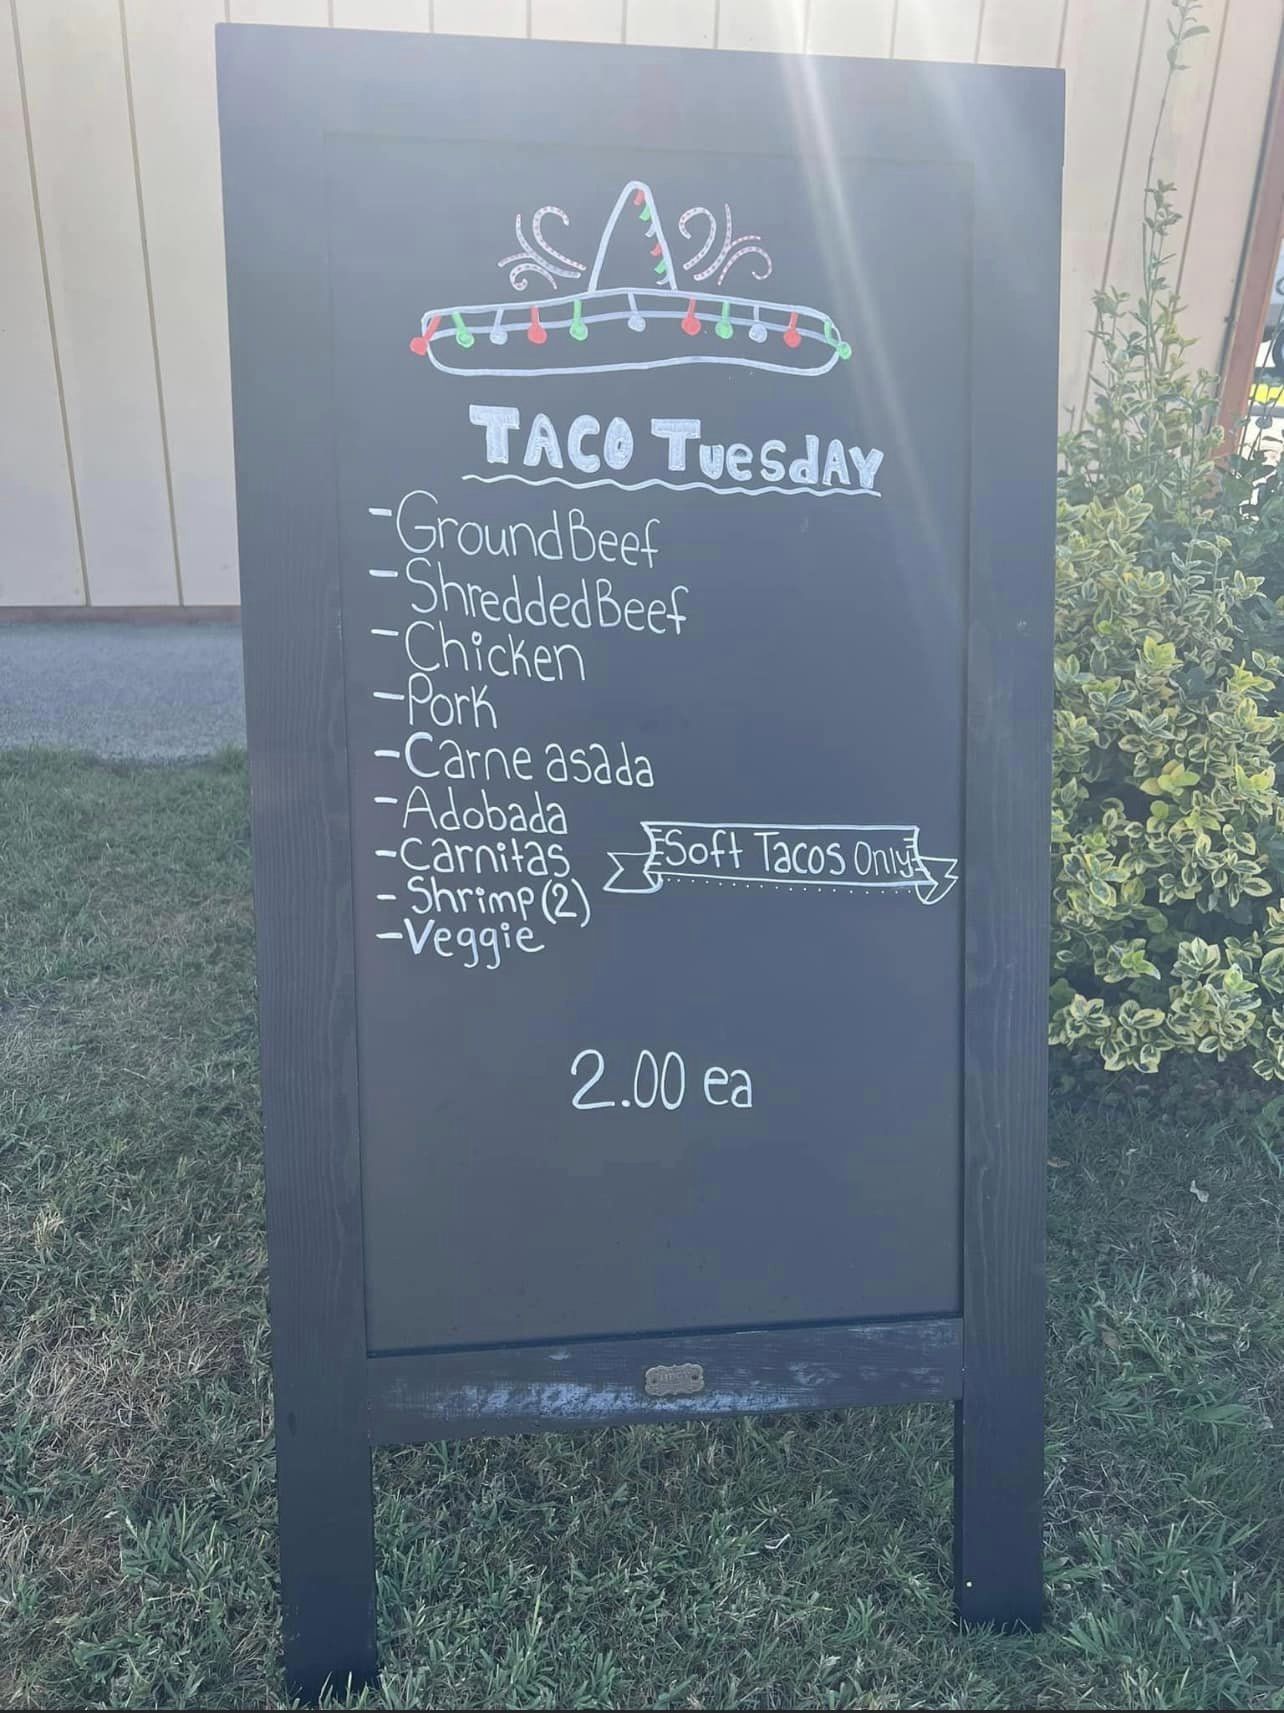 TACO TuesdAY
-Ground Beef
-Shredded Beef
-Chicken
-Pork
-Carne asada
-Adobada
-Carnitas
Soft Tacos Only
-Shrimp (2)
-Veggie
2.00 ea